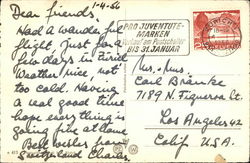 1-4-56
Dear friends,
Had a wonderful
flight. Just for a
few days in Zürich
Weather nice, not
too cold. Having
a real good time
hope everything is
going fine at home
Best wishes from
Switzerland Charles
PRO JUVENTUTE-
MARKEN
BIS 31. JANUAR
Mr. & Mrs
Carl Bränke
7189 N. Figueroa St.
Los Angeles 42
Calif. U.S.A.